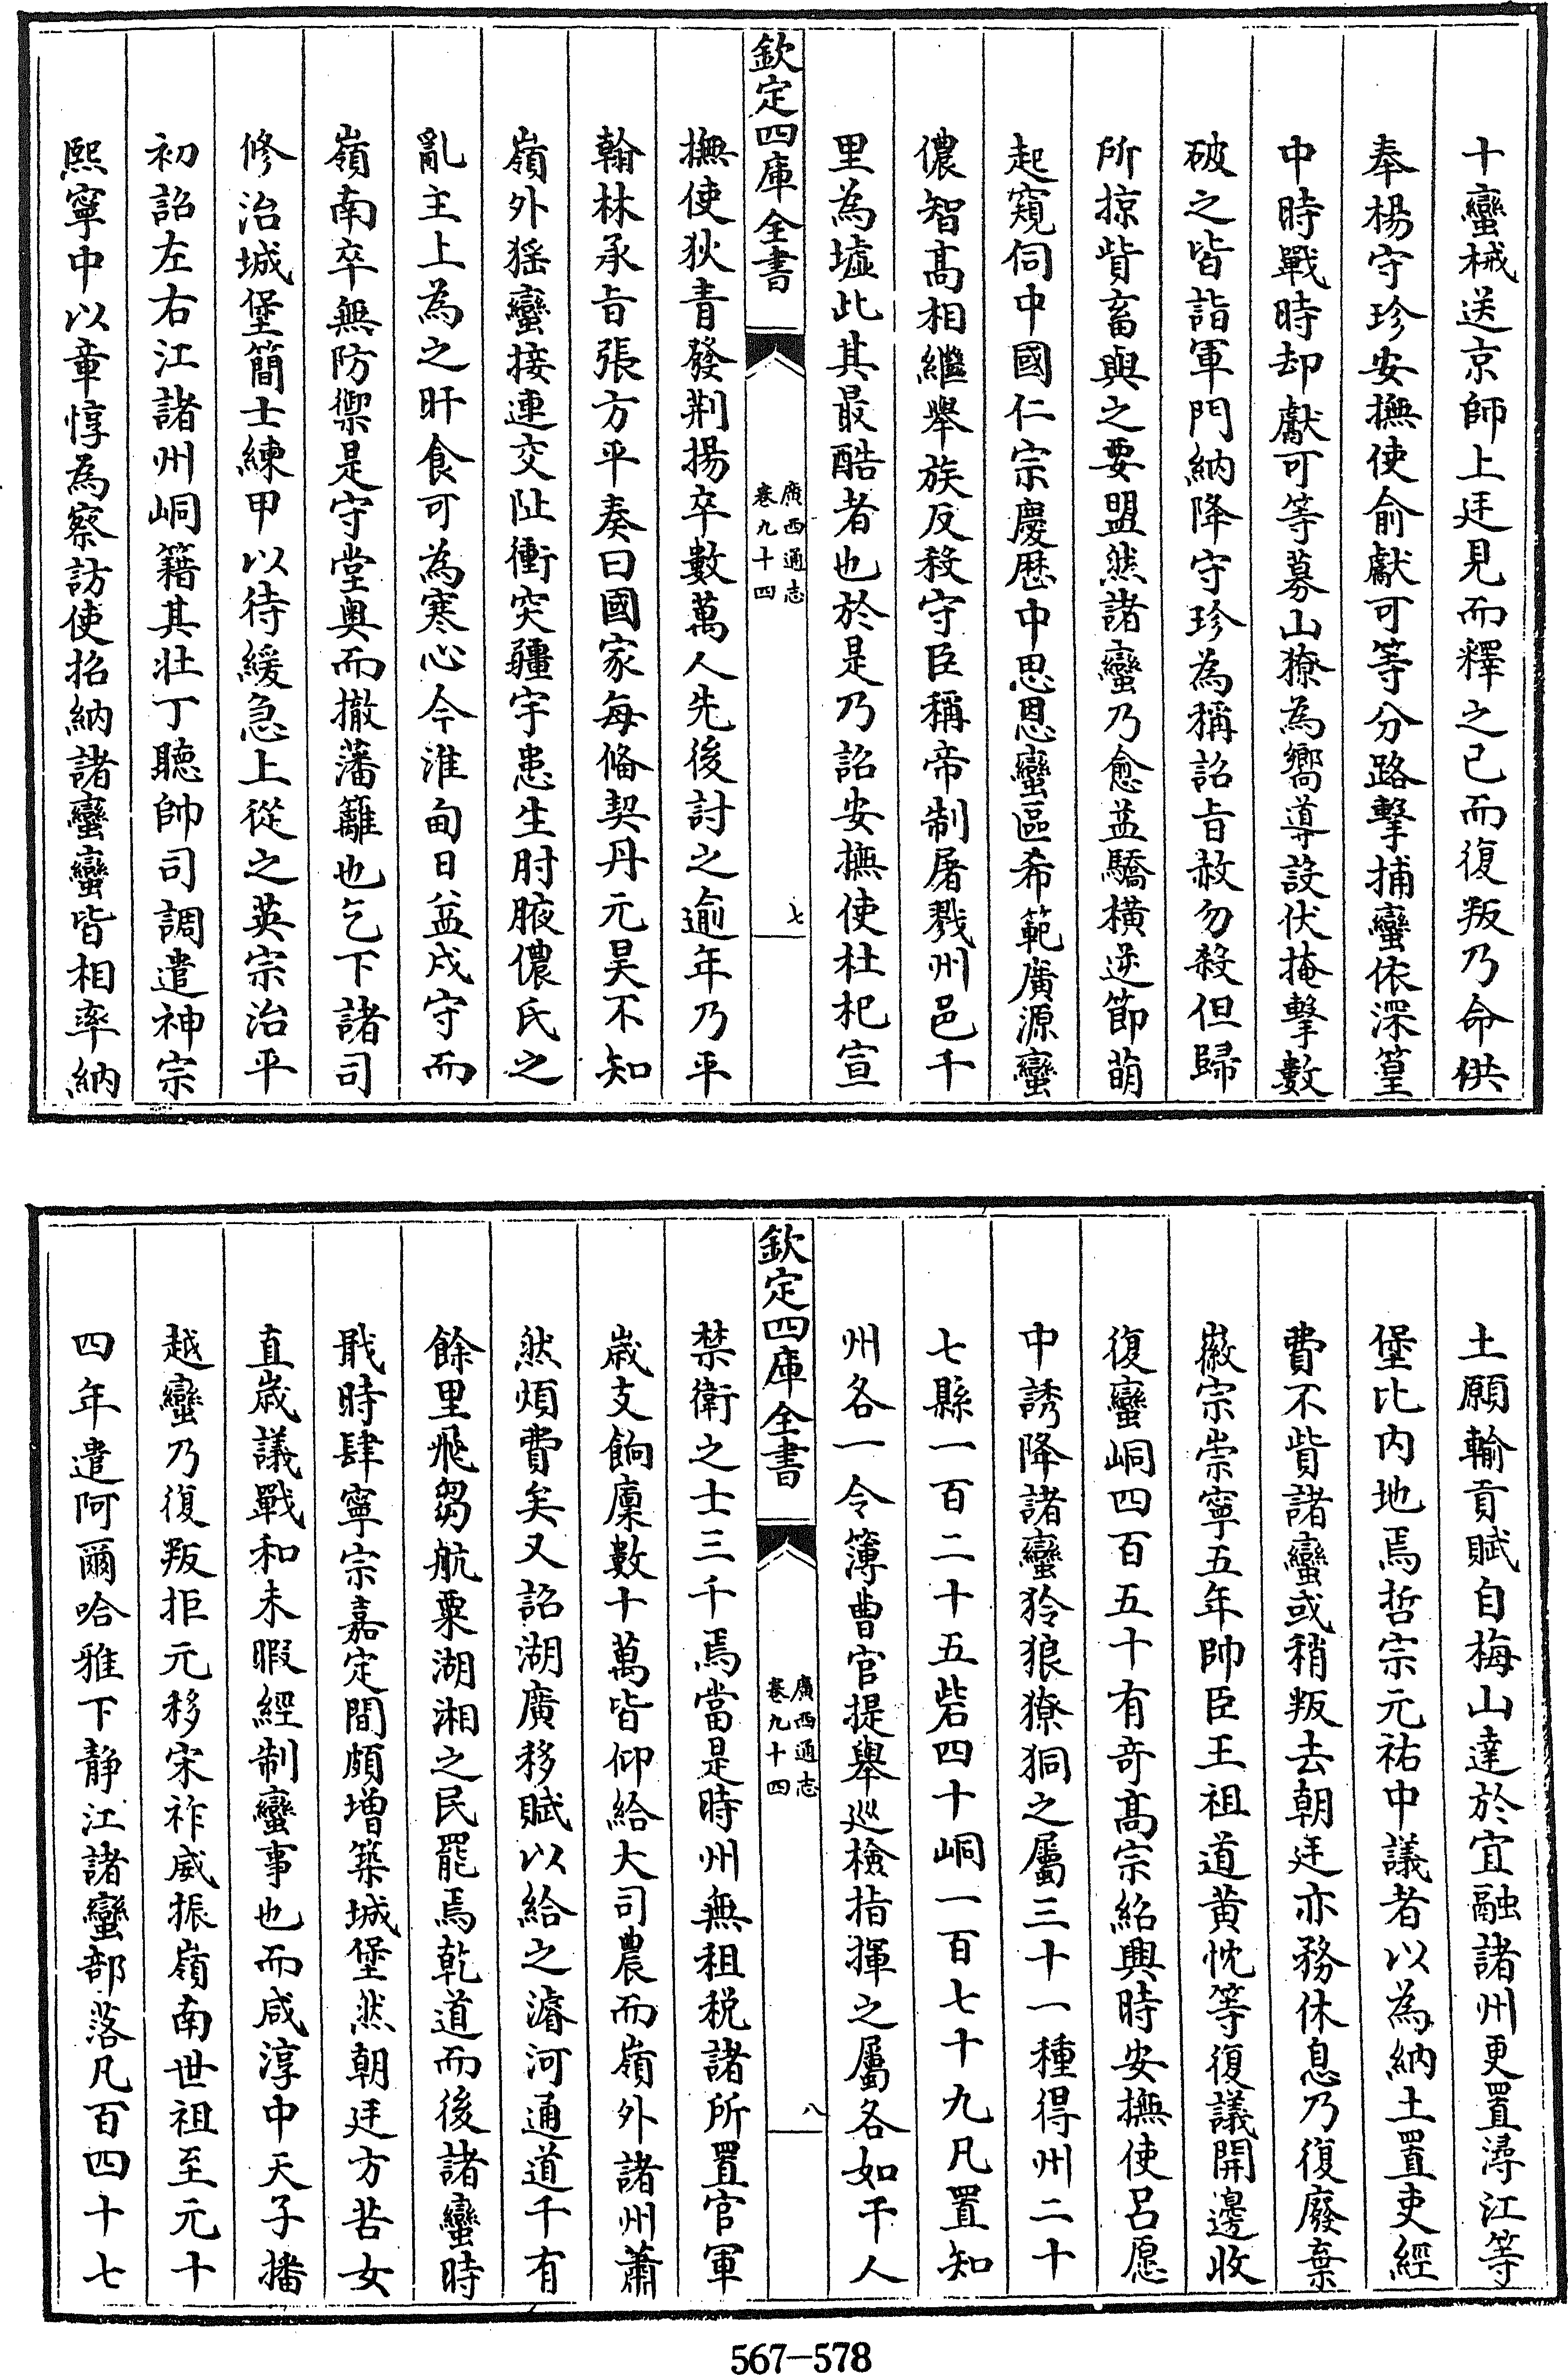 十蠻械送京師上廷見而釋之已而復叛乃命供
奉楊守珍安撫使俞獻可等分路擊捕蠻依深篁
中時戰時却獻可等募山獠為嚮導設伏掩擊數
破之皆詣軍門納降守珍為稱詔旨赦勿殺但歸
所掠貲畜與之要盟然諸蠻乃愈益驕橫逆節萌
起窺伺中國仁宗慶歴中思恩蠻區希範廣源蠻
儂智高相繼舉族反殺守臣稱帝制屠戮州邑千
里為墟此其最酷者也於是乃詔安撫使杜杞宣
欽定四庫全書
廣西通志
卷九十四
七
撫使狄青發荆揚卒數萬人先後討之逾年乃平
翰林承旨張方平奏曰國家每偹契丹元昊不知
嶺外猺蠻接連交阯衝突疆宇患生肘腋儂氏之
亂主上為之旰食可為寒心今淮甸日益戍守而
嶺南卒無防禦是守堂奥而撤藩籬也乞下諸司
修治城堡簡士練甲以待緩急上從之英宗治平
初詔左右江諸州峒籍其壮丁聽帥司調遣神宗
熙寧中以章惇為察訪使招納諸蠻蠻皆相率納
土願輸貢賦自梅山達於宜融諸州更置潯江等
堡比内地焉哲宗元祐中議者以為納土置吏經
費不貲諸蠻或稍叛去朝廷亦務休息乃復廢棄
徽宗崇寧五年帥臣王祖道黄忱等復議開邊收
復蠻峒四百五十有奇髙宗紹興時安撫使吕愿
中誘降諸蠻狑狼獠狪之屬三十一種得州二十
七縣一百二十五砦四十峒一百七十九凡置知
州各一令簿曹官提舉巡檢指揮之屬各如干人
欽定四庫全書
廣西通志
卷九十四
八
禁衛之士三千焉當是時州無租税諸所置官軍
歳支餉廩數十萬皆仰給大司農而嶺外諸州蕭
然煩費矣又詔湖廣移賦以給之濬河通道千有
餘里飛芻航粟湖湘之民罷焉乾道而後諸蠻時
戢時肆寧宗嘉定間頗增築城堡然朝廷方苦女
直歳議戰和未暇經制蠻事也而咸淳中天子播
越蠻乃復叛拒元移宋祚威振嶺南世祖至元十
四年遣阿爾哈雅下静江諸蠻部落凡百四十七
567—578